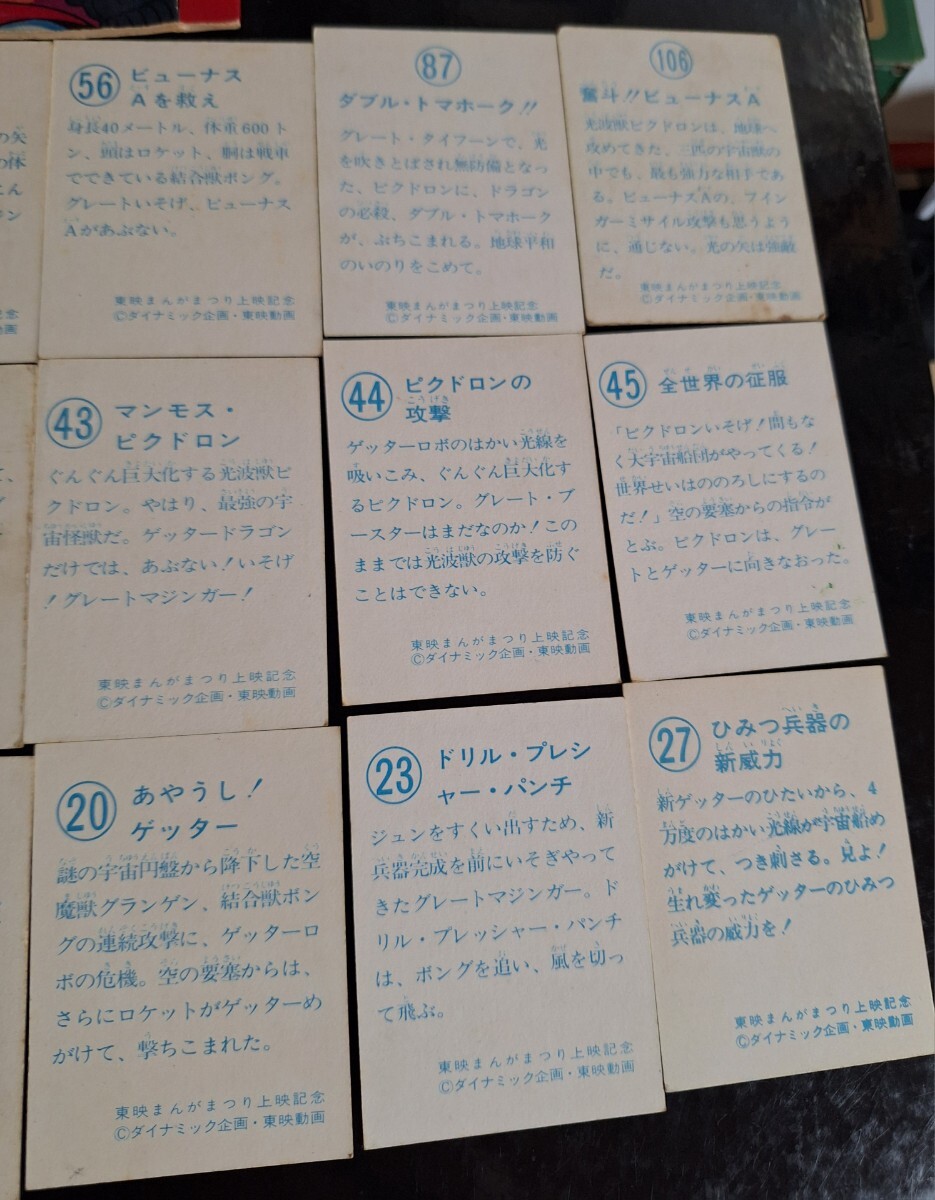 56
ビューナス
Aを救え
身長40メートル、体重600ト
ン、頭はロケット、胴は戦車
でできている結合獣ボング。
グレートいそげ、ビューナス
Aがあぶない。
東映まんがまつり上映記念
©ダイナミック企画・東映動画
87
ダブル・トマホーク!!
グレート・タイフーンで、光
を吹きとばされ無防備となっ
た、ピクドロンに、ドラゴン
の必殺、ダブル・トマホーク
が、ぶちこまれる。地球平和
のいのりをこめて。
東映まんがまつり上映記念
©ダイナミック企画・東映動画
106
奮斗!!ビューナスA
光波獣ピクドロンは、地球へ
攻めてきた、三匹の宇宙獣の
中でも、最も強力な相手であ
る。ビューナスAの、フイン
ガーミサイル攻撃も思うよう
に、通じない。光の矢は強敵
だ。
東映まんがまつり上映記念
©ダイナミック企画・東映動画
43
マンモス・
ピクドロン
ぐんぐん巨大化する光波獣ピ
クドロン。やはり、最強の宇
宙怪獣だ。ゲッタードラゴン
だけでは、あぶない!いそげ
!グレートマジンガー!
東映まんがまつり上映記念
©ダイナミック企画・東映動画
44
ピクドロンの
攻撃
ゲッターロボのはかい光線を
吸いこみ、ぐんぐん巨大化す
るピクドロン。グレート・ブ
ースターはまだなのか!この
ままでは光波獣の攻撃を防ぐ
ことはできない。
東映まんがまつり上映記念
©ダイナミック企画・東映動画
45
全世界の征服
「ピクドロンいそげ!間もな
く大宇宙船団がやってくる!
世界せいはののろしにするの
だ!」空の要塞からの指令が
とぶ。ピクドロンは、グレー
トとゲッターに向きなおった。
東映まんがまつり上映記念
©ダイナミック企画・東映動画
20
あやうし!
ゲッター
謎の宇宙円盤から降下した空
魔獣グランゲン、結合獣ボン
グの連続攻撃に、ゲッターロ
ボの危機。空の要塞からは、
さらにロケットがゲッターめ
がけて、撃ちこまれた。
東映まんがまつり上映記念
©ダイナミック企画・東映動画
23
ドリル・プレシ
ャー・パンチ
ジュンをすくい出すため、新
兵器完成を前にいそぎやって
きたグレートマジンガー。ド
リル・プレッシャー・パンチ
は、ボングを追い、風を切っ
て飛ぶ。
東映まんがまつり上映記念
©ダイナミック企画・東映動画
27
ひみつ兵器の
新威力
新ゲッターのひたいから、4
万度のはかい光線が宇宙船め
がけて、つき刺さる。見よ!
生れ変ったゲッターのひみつ
兵器の威力を!
東映まんがまつり上映記念
©ダイナミック企画・東映動画